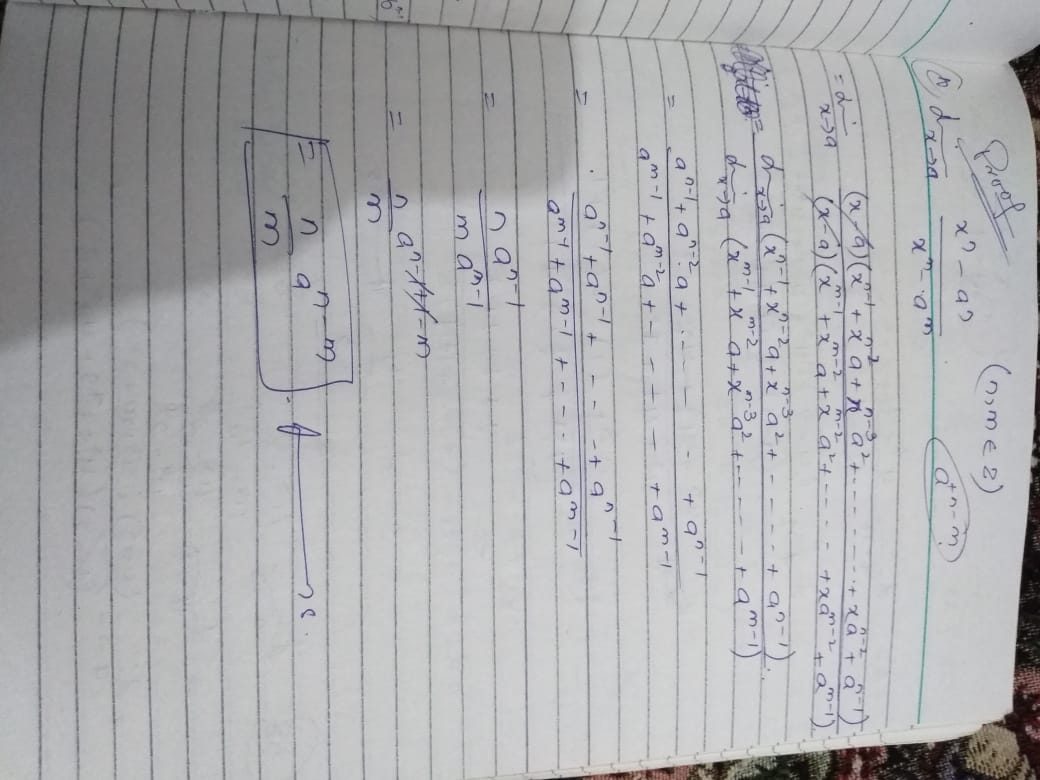 Proof
(n, m ∈ z)
(ii), lim x→a xⁿ - aⁿ / xᵐ - aᵐ
a⁺ⁿ⁻ᵐ
= lim x→a (x-a)(xⁿ⁻¹ + xⁿ⁻²a + xⁿ⁻³a² + ------- + xaⁿ⁻² + aⁿ⁻¹) / (x-a)(xᵐ⁻¹ + xᵐ⁻²a + xᵐ⁻²a² + ---- + xaᵐ⁻² + aᵐ⁻¹)
= lim x→a (xⁿ⁻¹ + xⁿ⁻²a + xⁿ⁻³a² + ----- + aⁿ⁻¹) / lim x→a (xᵐ⁻¹ + xᵐ⁻²a + xⁿ⁻³a² + ----- + aᵐ⁻¹)
= aⁿ⁻¹ + aⁿ⁻².a + ----- + aⁿ⁻¹ / aᵐ⁻¹ + aᵐ⁻²a + ----- + aᵐ⁻¹
= aⁿ⁻¹ + aⁿ⁻¹ + ---- + aⁿ⁻¹ / aᵐ⁻¹ + aᵐ⁻¹ + ---- + aᵐ⁻¹
= n aⁿ⁻¹ / m aᵐ⁻¹
= n/m aⁿ⁻¹⁺¹⁻ᵐ
= n/m aⁿ⁻ᵐ